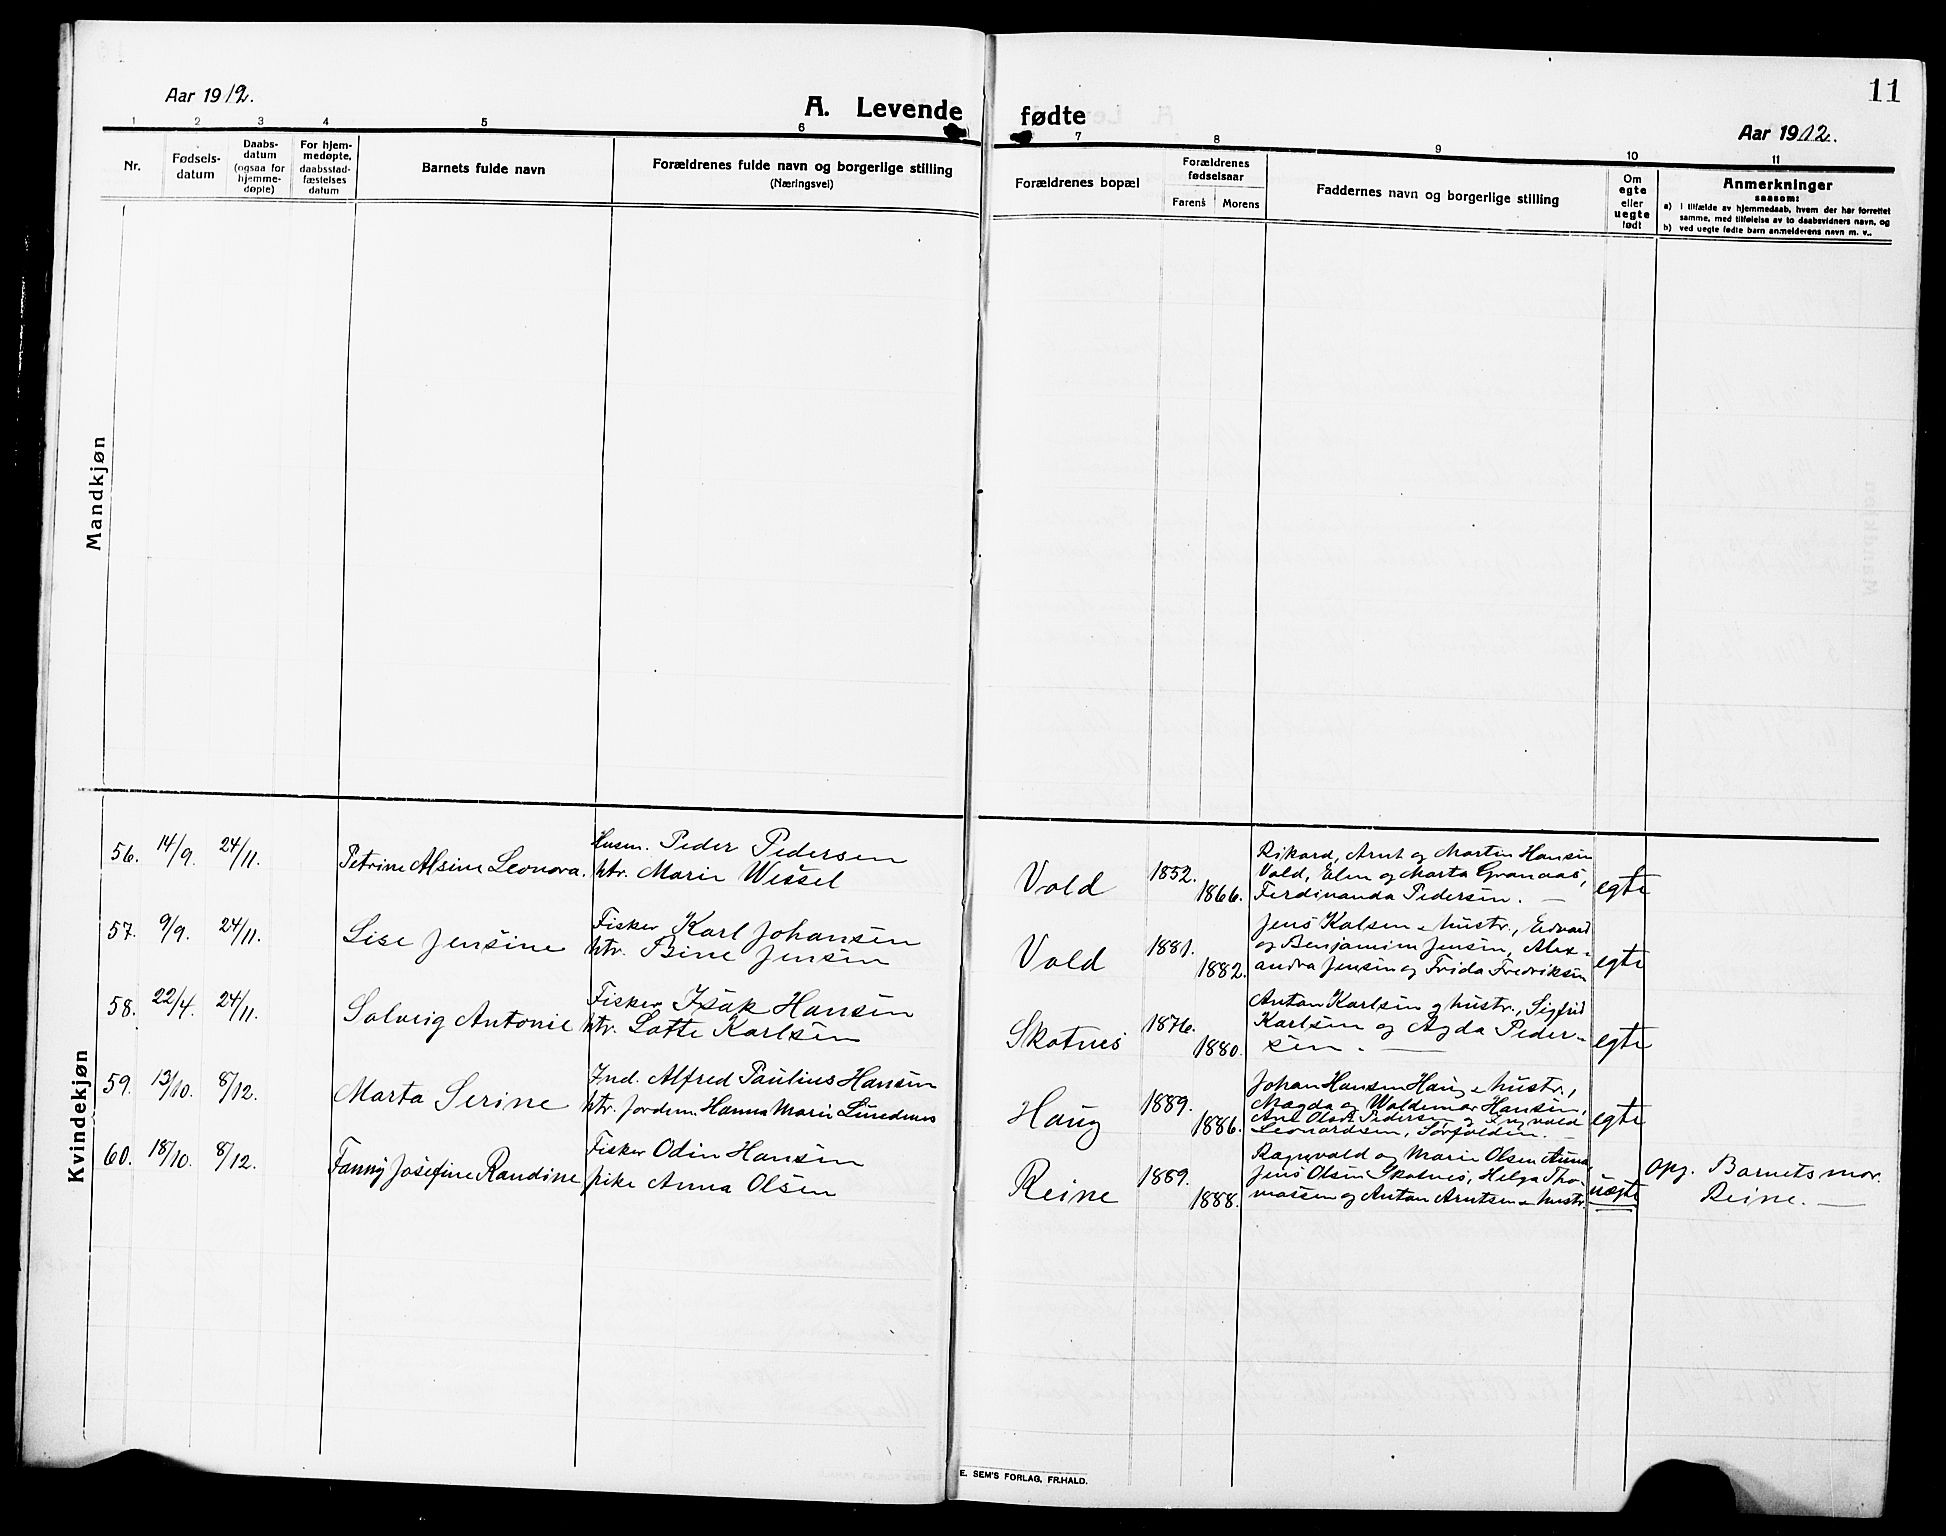 Aar 1912.
A. Levende fødte
11
Aar 1912.
1 2 3 4 5 6 7 8 9 10 11
Nr.
Fødsels-
datum
Daabs-
datum
(ogsaa for
hjemme-
døpte)
For hjem-
medøpte,
daabsstad-
fæstelses
datum
Barnets fulde navn
Forældrenes fulde navn og borgerlige stilling
(Næringsvei)
Forældrenes bopæl
Forældrenes
fødselsaar
Farens Morens
Faddernes navn og borgerlige stilling
Om
egte
eller
uegte
født
Anmerkninger
saasom:
a) I tilfælde av hjemmedaab, hvem der har forrettet
samme, med tilføielse av to daabsvidners navn, og
b) ved uegte fødte barn anmelderens navn m. v..
Mandkjøn
Kvindekjøn
56. 14/9. 24/11. Petrine Alsine Leonora.
Husm. Peder Pedersen
htr. Marie Wessel
Vold 1852. 1866.
Rikard, Arnt og Martin Hansen
Vold, Elen og Marta Granaas,
Ferdinanda Pedersen. —
egte
57. 9/9. 24/11. Lise Jensine
Fisker Karl Johansen
htr. Bine Jensen
Vold 1881. 1882.
Jens Kalsen & hustr., Edvard
og Benjamin Jensen, Alex-
andra Jensen og Frida Fredriksen
egte
58. 22/4. 24/11. Solveig Antonie
Fisker Isak Hansen
htr. Lotte Karlsen
Skotnes 1876. 1880.
Anton Karlsen og hustr., Sigfrid
Karlsen og Agda Peder-
sen. —
egte
59. 13/10. 8/12. Marta Serine
Ind. Alfred Paulius Hansen
htr. Jordem. Hanna Marie Lundenes
Haug 1889. 1886.
Johan Hansen Haug & hustr.,
Magda og Waldemar Hansen,
Pedersen og Ingvald
Leonardsen, Sørfolden. —
egte
60. 18/10. 8/12. Fanny Josefine Randine
Fisker Odin Hansen
pike Anna Olsen
Reine 1889. 1888.
Ragnvald og Marie Olsen
Jens Olsen Skotnes, Helga Tho-
massen og Anton Arntsen & hustr.
uegte
opg. Barnets mor.
Reine. —
E. SEM'S FORLAG, FR.HALD.